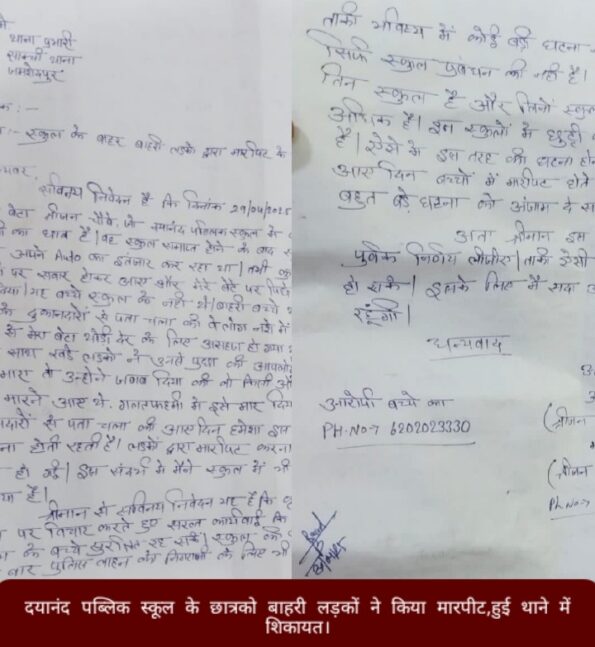 थाना प्रभारी
साकची थाना
जमशेदपुर
:- स्कूल के बाहर बाहरी लड़के द्वारा मारपीट के
सविनय निवेदन है कि दिनांक 29/04/2025
बेटा श्रीजन
का छात्र है। वह स्कूल समाप्त होने के बाद
अपने Auto का इंतजार कर रहा था। तभी
पर सवार होकर आए और मेरे बेटे पर
यह बच्चे स्कूल के नहीं थे। बाहरी बच्चे
के दुकानदारों से पता चला की वे लोग नशे में
से मेरा बेटा थोड़ी देर के लिए
साथ खड़े लड़को ने उनसे पुछा की आपलोग
मारा तो उन्होंने जवाब दिया की वो किसी और
मारने आए थे. गलतफहमी में इसे मार दिया
से पता चला की आए दिन हमेशा इस
होती रहती है। लड़कों द्वारा मारपीट करना
हो गई। इस संदर्भ में मैंने स्कूल में भी
है।
श्रीमान से सविनय निवेदन यह है कि
पर विचार करते हुए सख्त कार्यवाई
के बच्चे सुरक्षित रह सकें। स्कूल की
बार पुलिस वाहन की निगरानी के लिए भी
ताकी भविष्य में कोई बड़ी घटना
सिर्फ स्कूल प्रबंधन की नहीं है।
तिन स्कूल है और तिनों स्कूल
अधिक है। इन स्कूलों में छुट्टी
है। ऐसे में इस तरह की घटना होना
आए दिन बच्चों में मारपीट होते
बहुत बड़े घटना को अंजाम दे
अतः श्रीमान इस
पूर्वक निर्णय लीजीए। ताकि ऐसी
हो सके। इसके लिए मैं सदा
रहूंगी।
धन्यवाद
आरोपी बच्चे का
PH.NO-> 6202023330
(श्रीजन
(श्रीजन
Ph.No->
दयानंद पब्लिक स्कूल के छात्रको बाहरी लड़कों ने किया मारपीट,हुई थाने में
शिकायत।